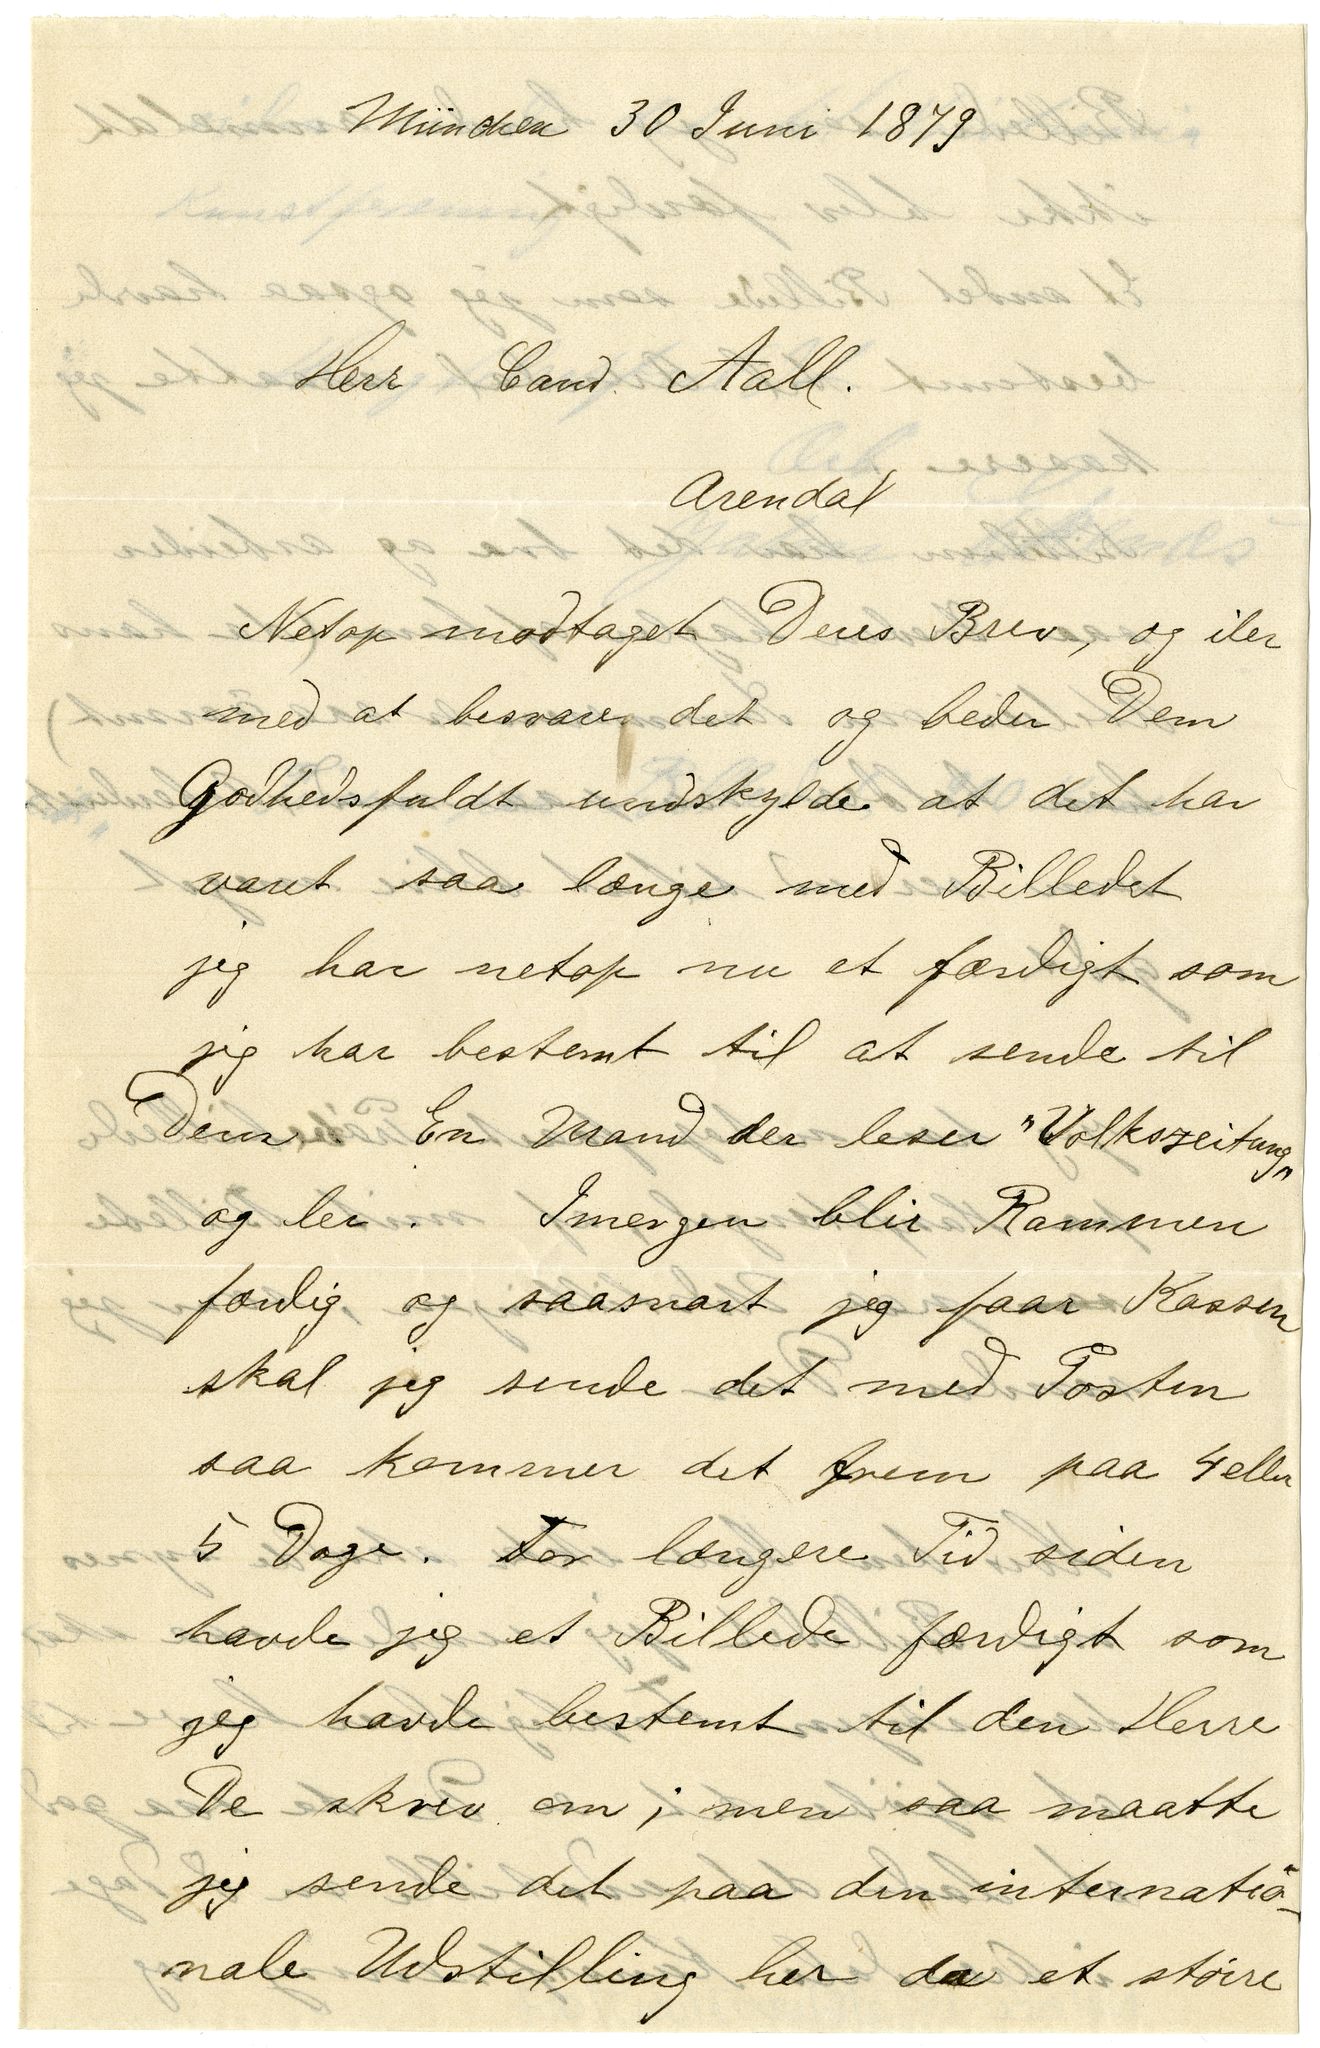 München 30 Juni 1879
Herr Cand. Aall.
Arendal
Netop modtaget Deres Brev, og iler
med at besvare det og beder Dem
Godhedsfuldt undskylde at det har
varet saa længe med Billedet
jeg har netop nu et færdigt som
jeg har bestemt til at sende til
Dem. En Mand der leser "Volkszeitung"
og ler. Imorgen blir Rammen
færdig og saasnart jeg faar Kassen
skal jeg sende det med Posten
saa kommer det frem paa 4 eller
5 Dage. For længere Tid siden
havde jeg et Billede færdigt som
jeg havde bestemt til den Herre
De skrev om; men saa maatte
jeg sende det paa den internatio-
nale Udstilling her da et større